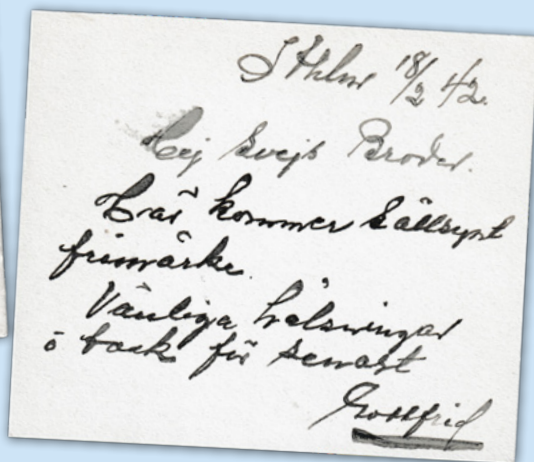 Sthlm 18/2 42.
Hej Svejs Broder.
Här kommer sällsynt
frimärke.
Vänliga hälsningar
o tack för senast
Gottfrid